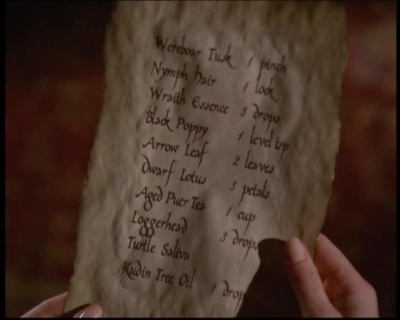 Wereboar Tusk 1 pinch
Nymph Hair 1 lock
Wraith Essence 3 drops
Black Poppy 1 level tsp
Arrow Leaf 2 leaves
Dwarf Lotus 3 petals
Aged Puer Tea 1 cup
Loggerhead
Turtle Saliva 3 drops
Kudin Tree Oil 1 drop